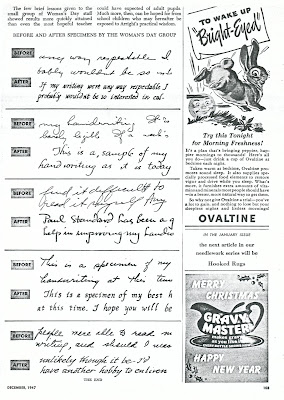 The few brief lessons given to the
small group of Woman's Day staff
showed results more quickly attained
than even the most hopeful teacher
could have expected of adult pupils.
Much more, then, can be hoped for from
school children who may hereafter be
exposed to Arrighi's practical wisdom.
BEFORE AND AFTER SPECIMENS BY THE WOMAN'S DAY GROUP
BEFORE
any way respectable I
bably wouldn't be so int
AFTER
If my writing were any way respectable I
probably wouldn't be so interested in cal-
BEFORE
my handwriting. It is
AFTER
This is a sample of my
handwriting as it is today
BEFORE
find it difficult to
read it myself
AFTER
Paul Standard has been a g
help in improving my handwri
BEFORE
This is a specimen of my
handwriting at this time
AFTER
This is a specimen of my best h
at this time. I hope you will be
BEFORE
people were able to read m
writing, and should I was
AFTER
unlikely though it be—I'd
have another hobby to enliven
THE END
DECEMBER, 1947
TO WAKE UP
"Bright-Eyed"!
Try this Tonight
for Morning Freshness!
It's a plan that's bringing peppier, happier
mornings to thousands! Here's all you
do—just drink a cup of Ovaltine at
bedtime each night.
Taken warm at bedtime, Ovaltine promotes
sound sleep. It also supplies specially
processed food-elements to
OVALTINE
IN THE JANUARY ISSUE
the next article in our
needlework series will be
Hooked Rugs
MERRY
CHRISTMAS
GRAVY
MASTER
makes gravy
as you like it
HAPPY
NEW YEAR
103